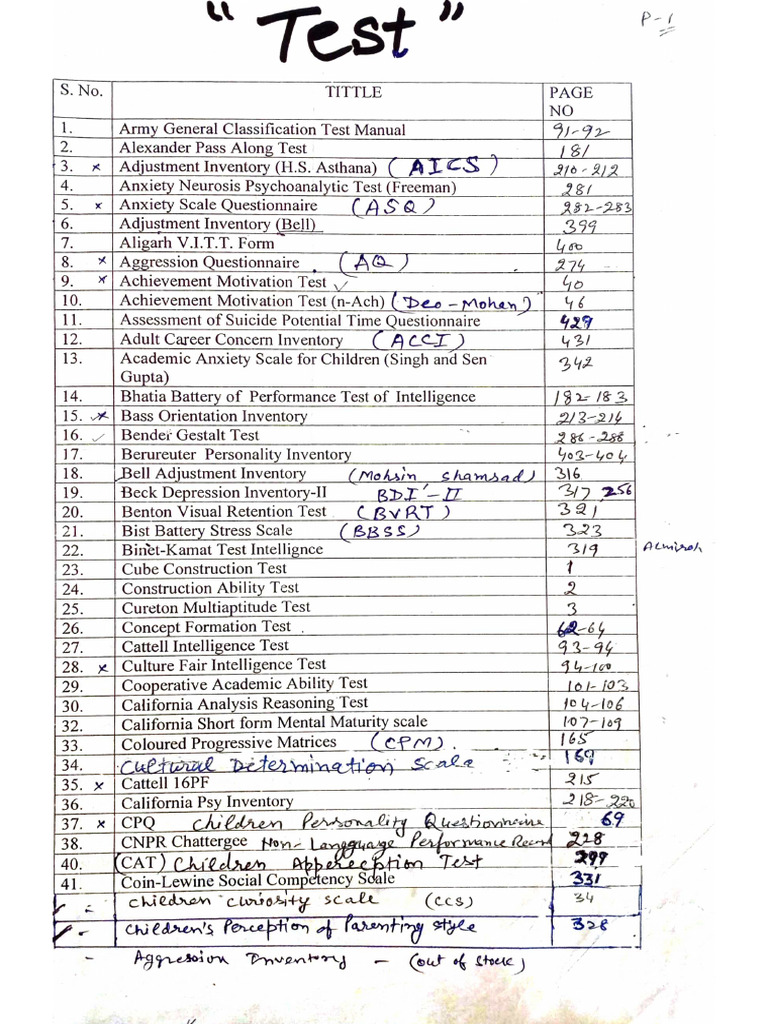 "Test"
P-1
S. No. TITTLE PAGE NO
1. Army General Classification Test Manual 91-92
2. Alexander Pass Along Test 181
3. x Adjustment Inventory (H.S. Asthana) (AICS) 210-212
4. Anxiety Neurosis Psychoanalytic Test (Freeman) 281
5. x Anxiety Scale Questionnaire (ASQ) 282-283
6. Adjustment Inventory (Bell) 399
7. Aligarh V.I.T.T. Form 400
8. x Aggression Questionnaire (AQ) 274
9. x Achievement Motivation Test ✓ 40
10. Achievement Motivation Test (n-Ach) (Deo-Mohan) 46
11. Assessment of Suicide Potential Time Questionnaire 429
12. Adult Career Concern Inventory (ACCI) 431
13. Academic Anxiety Scale for Children (Singh and Sen 342
Gupta)
14. Bhatia Battery of Performance Test of Intelligence 182-183
15. x Bass Orientation Inventory 213-214
16. ✓ Bender Gestalt Test 286-288
17. Berureuter Personality Inventory 403-404
18. Bell Adjustment Inventory (Mohsin Shamsad) 316
19. Beck Depression Inventory-II BDI-II 317 256
20. Benton Visual Retention Test (BVRT) 321
21. Bist Battery Stress Scale (BBSS) 323
22. Binet-Kamat Test Intellignce 319 Almirah
23. Cube Construction Test 1
24. Construction Ability Test 2
25. Cureton Multiaptitude Test 3
26. Concept Formation Test 62-64
27. Cattell Intelligence Test 93-94
28. x Culture Fair Intelligence Test 94-100
29. Cooperative Academic Ability Test 101-103
30. California Analysis Reasoning Test 104-106
32. California Short form Mental Maturity scale 107-109
33. Coloured Progressive Matrices (CPM). 165
34. Cultural Determination Scale 169
35. x Cattell 16PF 215
36. California Psy Inventory 218-220
37. x CPQ Children Personality Questionnaire 69
38. CNPR Chattergee Non-Langguage Performance Record 228
40. (CAT) Children Appereception Test 299
41. Coin-Lewine Social Competency Scale 331
children curiosity scale (CCS) 34
Children's Perception of Parenting style 328
- Aggression Inventory - (out of stock)